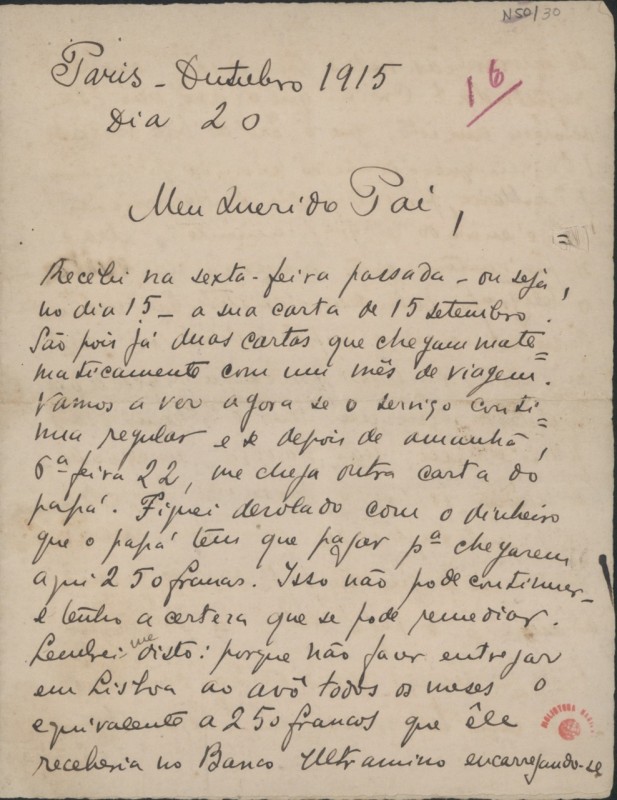 N50/30
Paris - Outubro 1915
Dia 20
16
Meu Querido Pai,
Recebi na sexta-feira passada - ou seja,
no dia 15 - a sua carta de 15 setembro.
São pois já duas cartas que chegam mate=
maticamente com um mês de viagem.
Vamos a ver agora se o serviço conti=
nua regular e se depois de amanhã,
6ª feira 22, me chega outra carta do
papá. Fiquei desolado com o dinheiro
que o papá têm que pagar pª chegarem
aqui 250 francos. Isso não pode continuar -
e tenho a certeza que se pode remediar.
Lembrei me disto: porque não fazer entregar
em Lisboa ao avô todos os meses o
equivalente a 250 francos que êle
receberia no Banco Ultramino encarregando-se